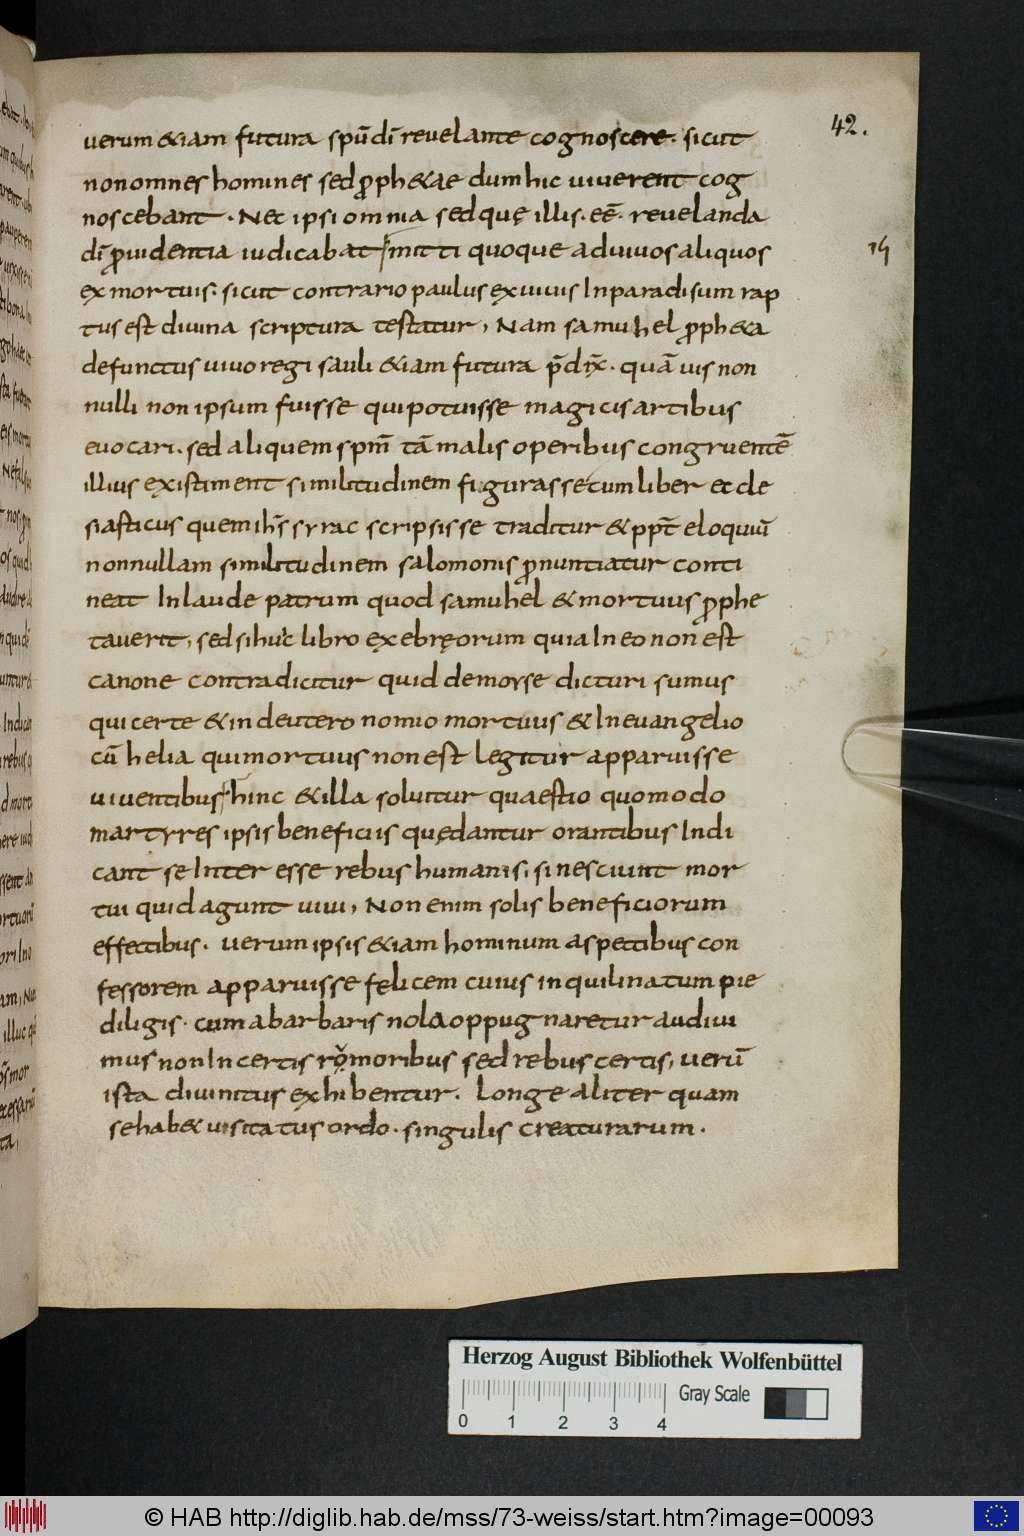 42.
verum &iam futura spūdī revelante cognoscere. sicut
non omnes homines sed proph&ae dum hic viverent cog
noscebant. Nec ipsi omnia sed quę illis. eē. revelanda
dī providentia iudicabat mitti quoque ad vivos aliquos
19
ex mortuis. sicut contrario paulus ex vivis In paradisum rap
tus est divina scriptura testatur, Nam samuhel proph&a
defunctus vivo regi sauli &iam futura p̄dix̄. quā vis non
nulli non ipsum fuisse qui potuisse magicis artibus
evocari. sed aliquem spm̄ tā malis operibus congruentē
illius existiment similitudinem figurasse cum liber eccle
siasticus quem ihs̄ syrac scripsisse traditur & ppt̄ eloquiū
nonnullam similitudinem salomonis pronuntiatur conti
neat In laude patrum quod samuhel & mortuus prophe
taverit, sed si huic libro ex ebręorum quia In eo non est
canone contradicitur quid de moyse dicturi sumus
qui certe & in deuteronomio mortuus & In evangelio
cū helia qui mortuus non est legitur apparuisse
viventibus hinc & illa solvitur quaestio quomodo
martyres ipsis beneficiis quę dantur orantibus Indi
cant se Interesse rebus humanis, si nesciunt mor
tui quid agunt vivi, Non enim solis beneficiorum
effectibus. verum ipsis &iam hominum aspectibus con
fessorem apparuisse fęlicem cuius inquilinatum pie
diligis. cum a barbaris nola oppugnaretur audivi
mus non Incertis rumoribus sed rebus certis, verū
ista divinitus exhibentur. Longe aliter quam
se hab& usitatus ordo. singulis creaturarum.
Herzog August Bibliothek Wolfenbüttel
Gray Scale
0 1 2 3 4
© HAB http://diglib.hab.de/mss/73-weiss/start.htm?image=00093